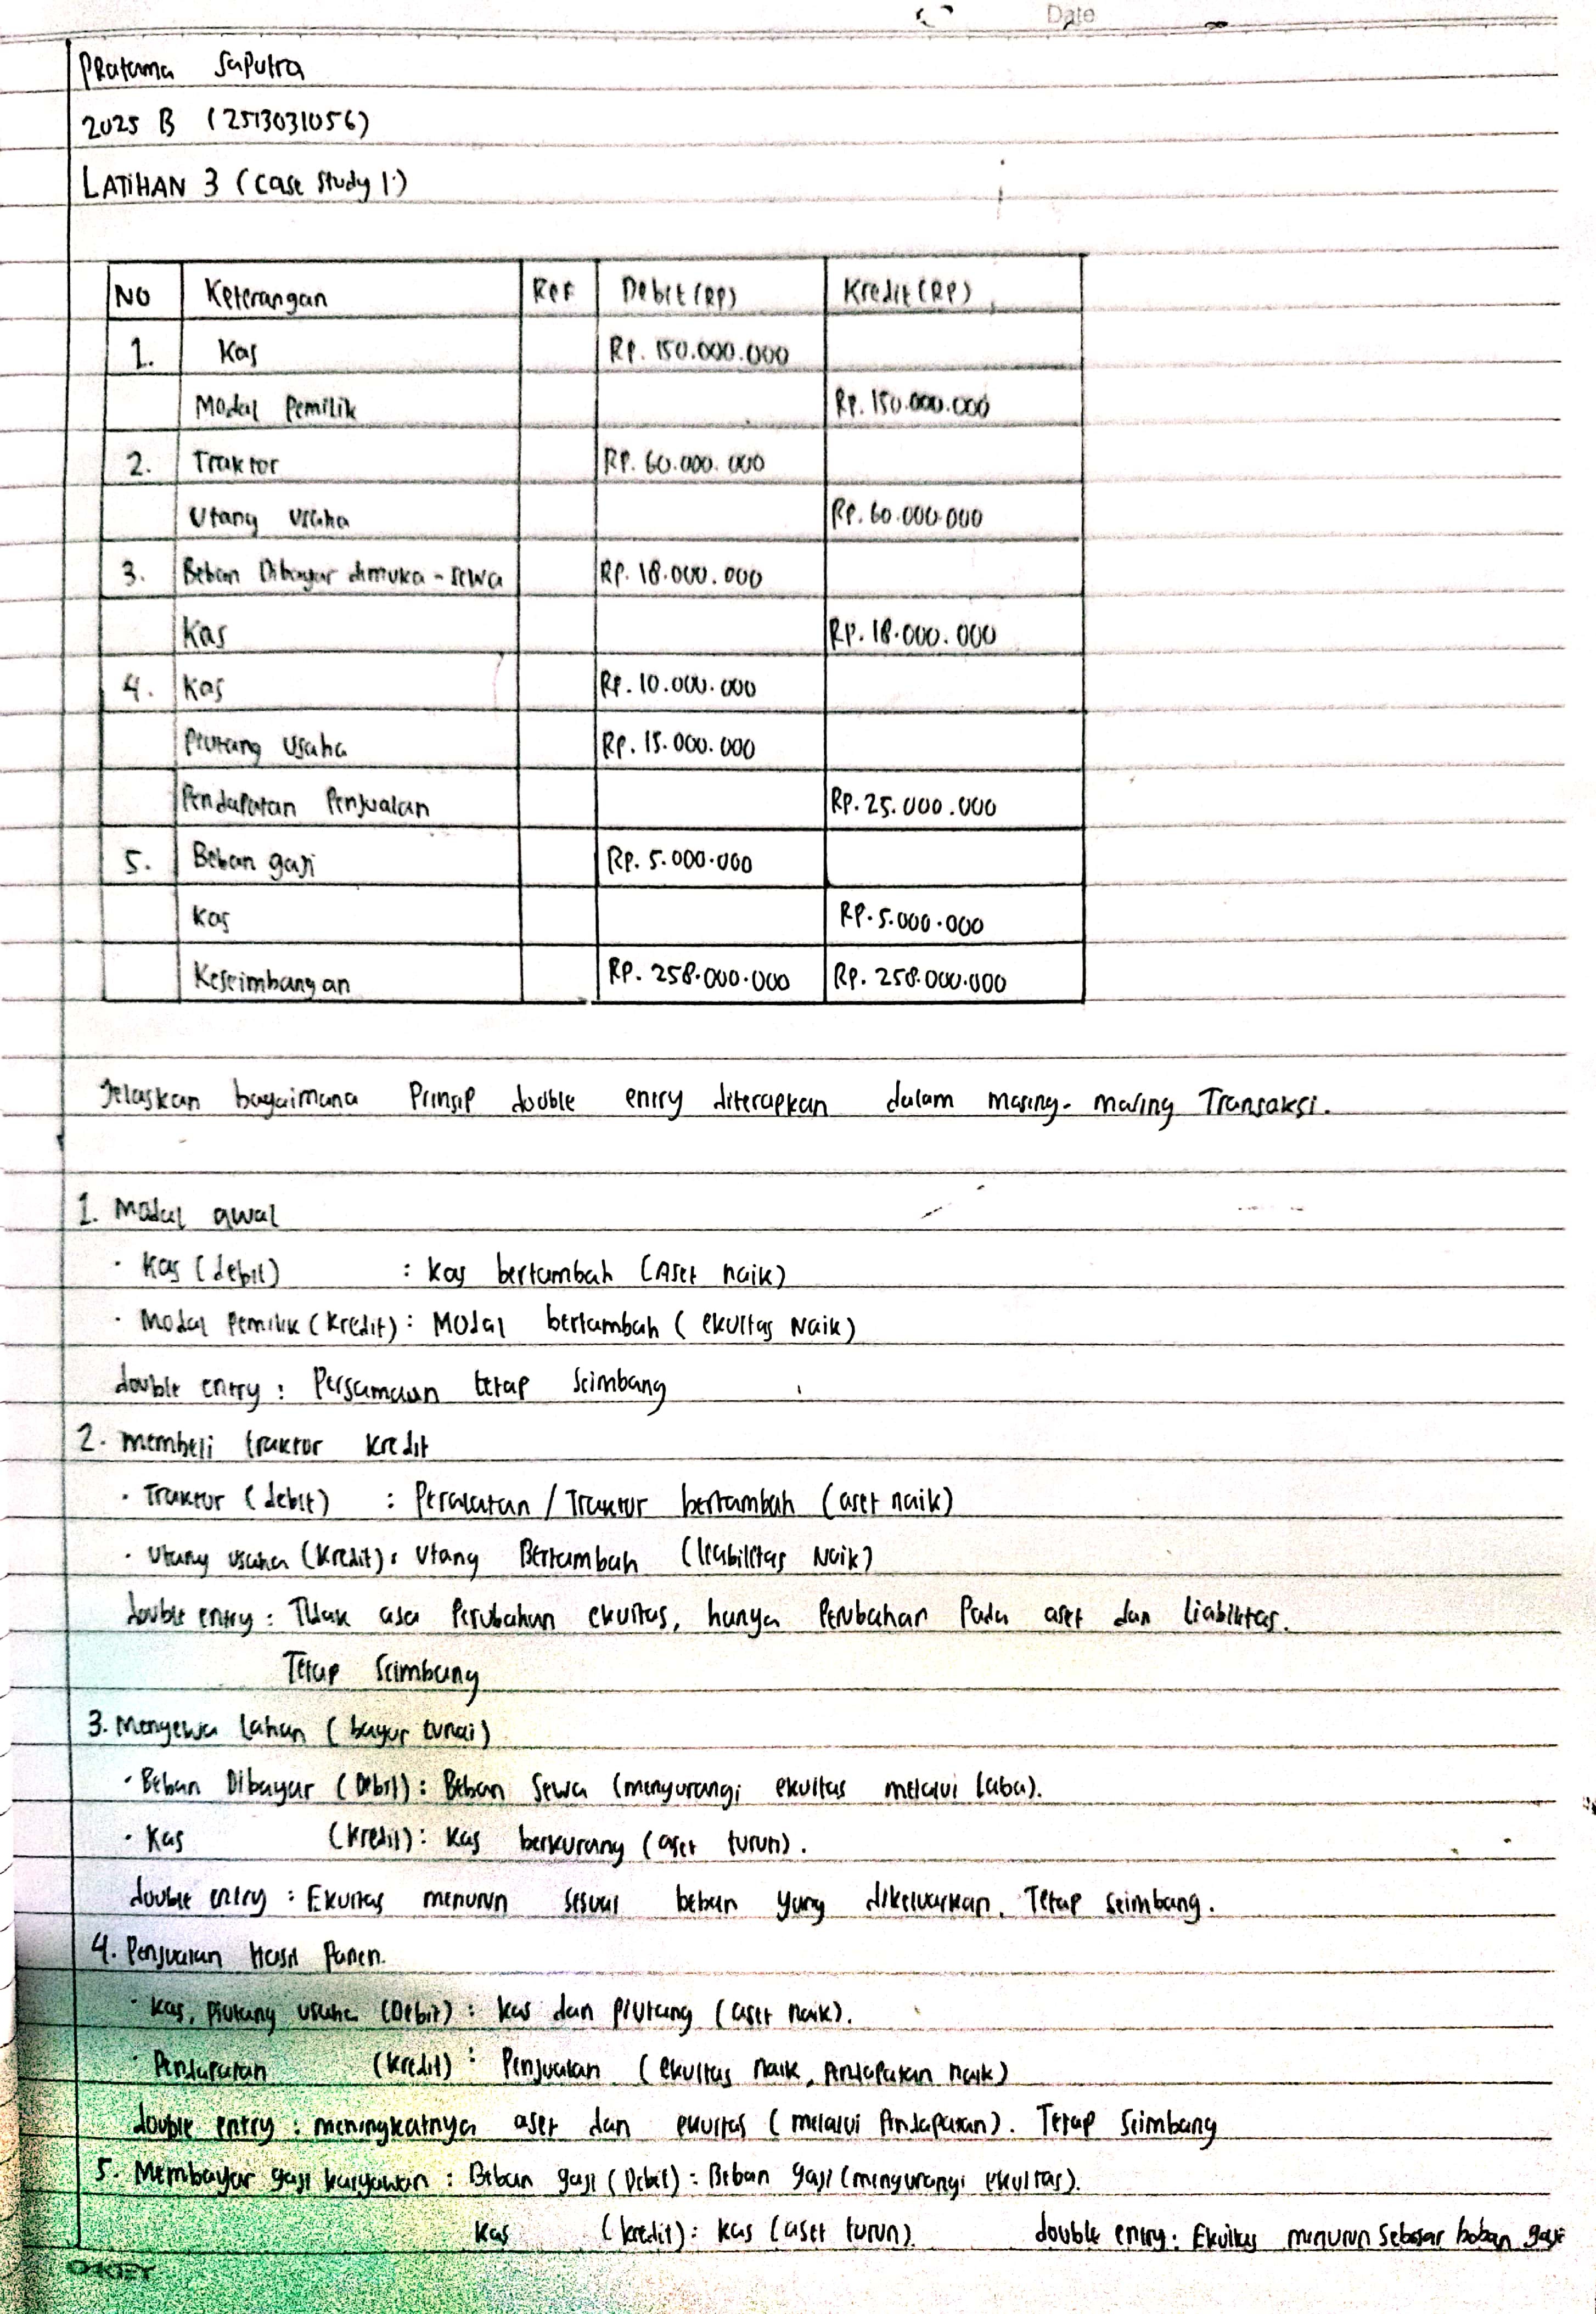 Date
Pratama Saputra
2025 B (2513031056)
LATIHAN 3 (Case Study 1.)
NO Keterangan Ref Debit (RP) Kredit (RP)
1. Kas Rp. 150.000.000
Modal Pemilik Rp. 150.000.000
2. Traktor Rp. 60.000.000
Utang usaha Rp. 60.000.000
3. Beban Dibayar dimuka - sewa Rp. 18.000.000
Kas Rp. 18.000.000
4. Kas Rp. 10.000.000
Piutang Usaha Rp. 15.000.000
Pendapatan Penjualan Rp. 25.000.000
5. Beban gaji Rp. 5.000.000
Kas Rp. 5.000.000
Keseimbangan Rp. 258.000.000 Rp. 258.000.000
Jelaskan bagaimana Prinsip double entry diterapkan dalam masing-masing Transaksi.
1. Modal awal
· Kas (debit) : Kas bertambah (Aset naik)
· Modal Pemilik (Kredit) : Modal bertambah (ekuitas Naik)
double entry : Persamaan tetap Seimbang
2. membeli traktor kredit
· Traktor (debit) : Peralatan / Traktor bertambah (aset naik)
· Utang usaha (Kredit) : Utang Bertambah (liabilitas Naik)
double entry : Tidak ada Perubahan ekuitas, hanya Perubahan Pada aset dan Liabilitas.
Tetap Seimbang
3. Menyewa Lahan (bayar tunai)
· Beban Dibayar (Debit) : Beban Sewa (mengurangi ekuitas melalui laba).
· Kas (Kredit) : Kas berkurang (aset turun).
double entry : Ekuitas menurun sesuai beban yang dikeluarkan. Tetap Seimbang.
4. Penjualan Hasil Panen.
· Kas, Piutang usaha (Debit) : Kas dan Piutang (aset naik).
· Pendapatan (Kredit) : Penjualan (ekuitas naik, Pendapatan naik)
double entry : meningkatnya aset dan ekuitas (melalui Pendapatan). Tetap Seimbang
5. Membayar gaji karyawan : Beban gaji (Debit) : Beban gaji (mengurangi ekuitas).
Kas (kredit) : Kas (aset turun). double entry : Ekuitas menurun sebesar beban gaji
OKEY